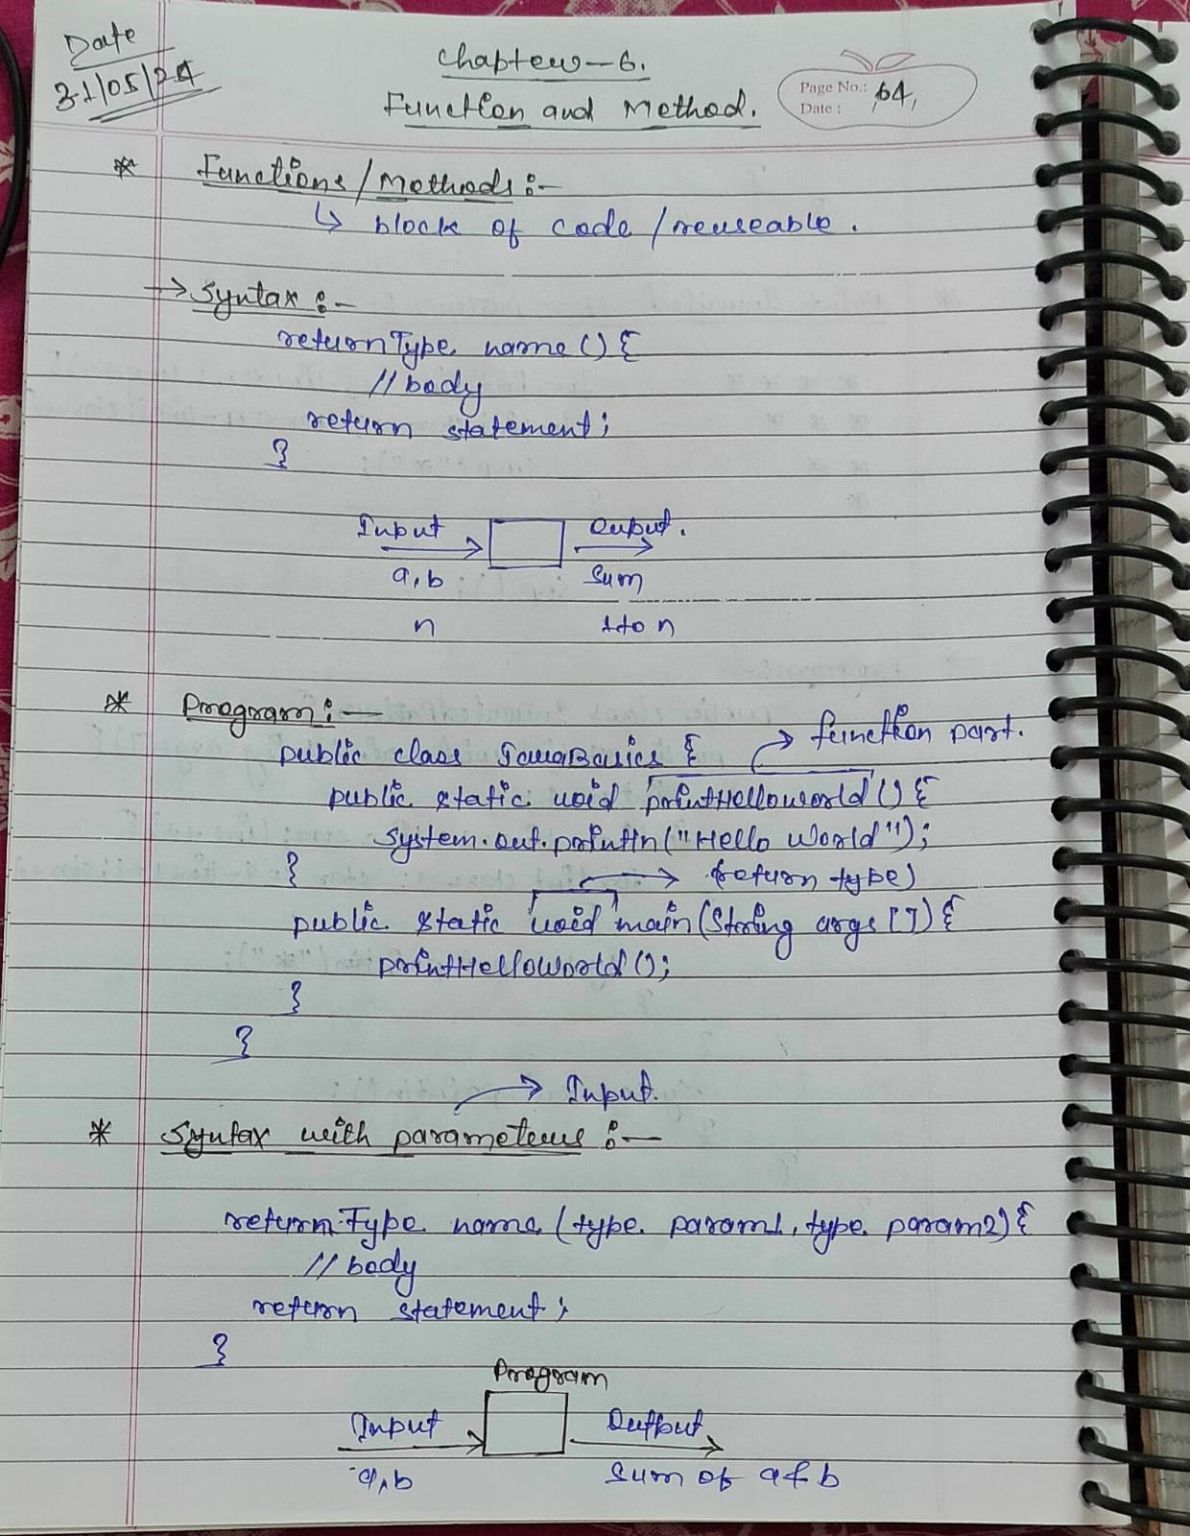 Date
31/05/24
Chapter-6.
Function and Method.
Page No.: 64,
Date :
* Functions/Methods :-
↳ block of code / reuseable.
→ Syntax :-
returnType name () {
// body
return statement;
}
Input → Output.
a, b Sum
n 1 to n
* Program :-
→ function part.
public class JavaBasics {
public static void printHelloworld () {
System.out.println("Hello World");
}
→ (return type)
public static void main (String args []) {
printHelloWorld ();
}
}
→ Input.
* Syntax with parameters :-
return Type name (type param1, type param2) {
// body
return statement;
}
Program
Input → Output →
a, b Sum of a & b